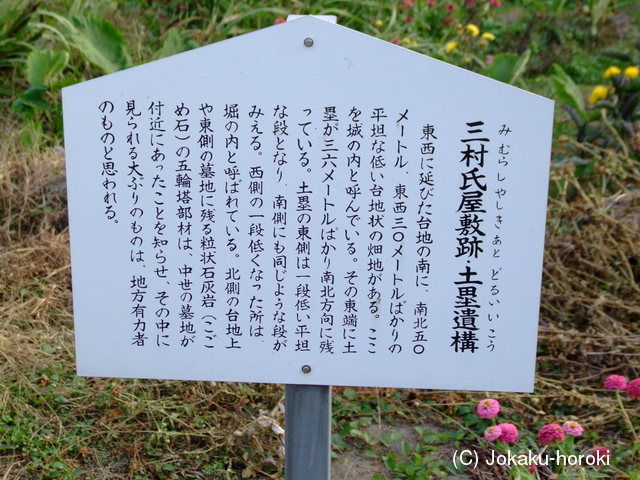 み むらし やしきあと どるい いこう
三村氏屋敷跡・土塁遺構
東西に延びた台地の南に、南北五〇
メートル、東西三〇メートルばかりの
平坦な低い台地状の畑地がある。ここ
を城の内と呼んでいる。その東端に土
塁が三六メートルばかり南北方向に残
っている。土塁の東側は一段低い平坦
な段となり、南側にも同じような段が
みえる。西側の一段低くなった所は、
堀の内と呼ばれている。北側の台地上
や東側の墓地に残る粒状石灰岩（こご
め石）の五輪塔部材は、中世の墓地が
付近にあったことを知らせ、その中に
見られる大ぶりのものは、地方有力者
のものと思われる。
(C) Jokaku-horoki